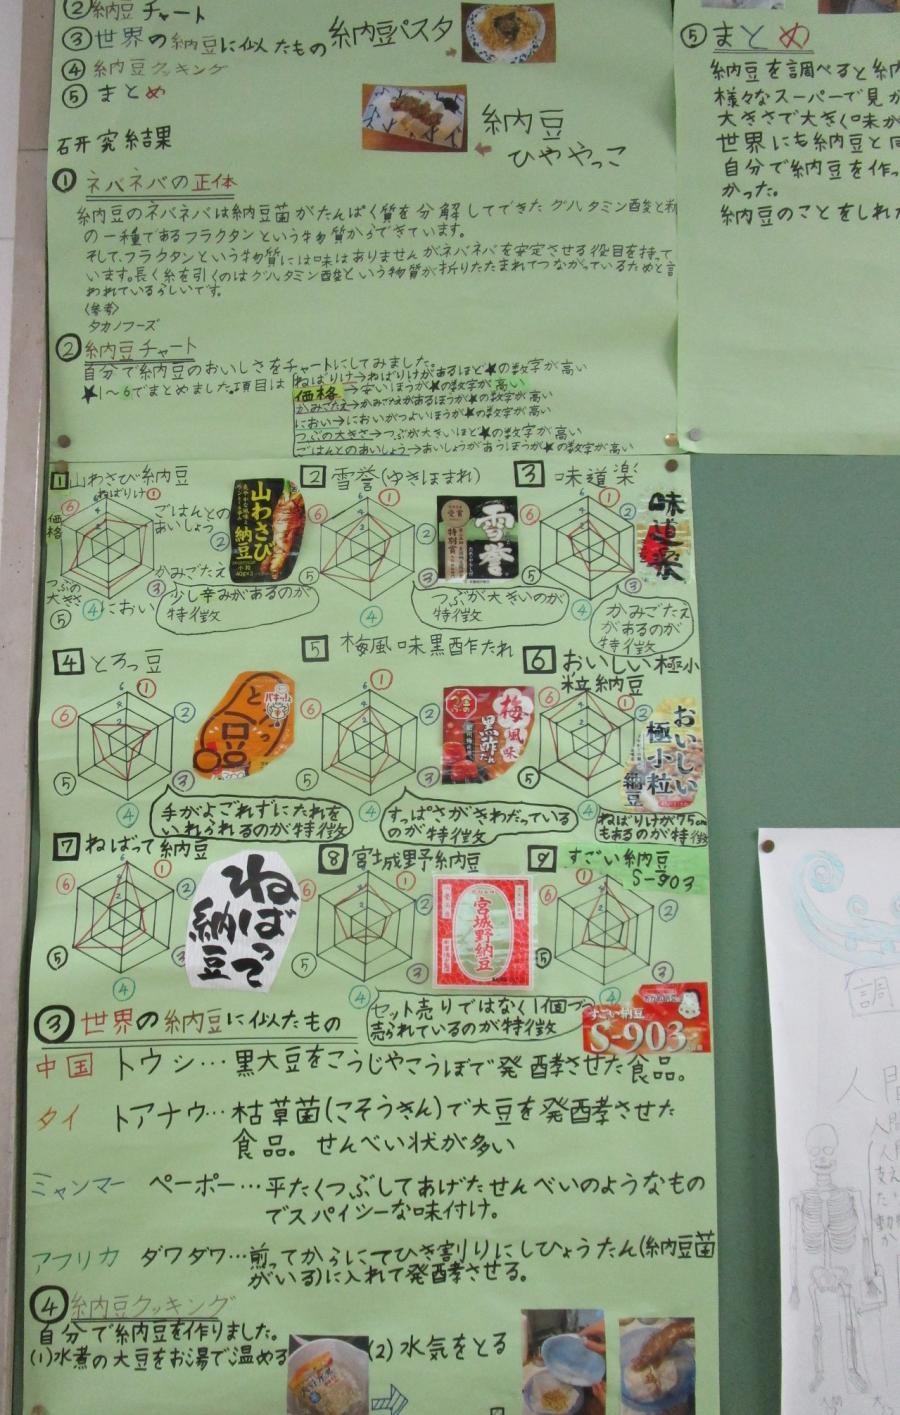 ②納豆チャート
③世界の納豆に似たもの
④納豆クッキング
⑤まとめ
納豆パスタ
納豆
ひややっこ
研究結果
①ネバネバの正体
納豆のネバネバは納豆菌がたんぱく質を分解してできたグルタミン酸と
の一種であるフラクタンという物質からできています。
そして、フラクタンという物質には味はありませんがネバネバを安定させる役目を持って
います。長く糸を引くのはグルタミン酸という物質が折りたたまれてつながっているためと言
われているらしいです。
〈参考〉
タカノフーズ
②納豆チャート
自分で納豆のおいしさをチャートにしてみました。
★1〜6でまとめました。項目は
ねばりけ→ねばりけがあるほど★の数字が高い
価格→安いほうが★の数字が高い
かみごたえ→かみごたえがあるほうが★の数字が高い
におい→においがつよいほうが★の数字が高い
つぶの大きさ→つぶが大きいほど★の数字が高い
ごはんとのあいしょう→あいしょうがあうほうが★の数字が高い
1 山わさび納豆
ねばりけ①
ごはんとの
あいしょう②
かみごたえ③
④におい
つぶの
大きさ
⑤
⑥
価格
山わさび
納豆
少し辛みがあるのが
特徴
2 雪誉(ゆきほまれ)
① ② ③ ④ ⑤ ⑥
雪誉
特別賞
つぶが大きいのが
特徴
3 味道楽
① ② ③ ④ ⑤ ⑥
味道楽
かみごたえ
があるのが
特徴
4 とろっ豆
① ② ③ ④ ⑤ ⑥
とろっ豆
手がよごれずにたれを
いれられるのが特徴
5 梅風味黒酢たれ
① ② ③ ④ ⑤ ⑥
梅風味
黒酢たれ
すっぱさがきわだっている
のが特徴
6 おいしい極小
粒納豆
① ② ④ ⑤ ⑥
おいしい
極小粒
納豆
ねばりけが75cm
もあるのが特徴
7 ねばって納豆
① ② ③ ④ ⑤ ⑥
ねばって
納豆
8 宮城野納豆
① ② ③ ④ ⑥
宮城野納豆
セット売りではなく1個づつ
売られているのが特徴
9 すごい納豆
S-903
① ② ③ ④ ⑤ ⑥
すごい納豆
S-903
③世界の納豆に似たもの
中国 トウシ…黒大豆をこうじやこうぼで発酵させた食品。
タイ トアナウ…枯草菌(こそうきん)で大豆を発酵させた
食品。せんべい状が多い
ミャンマー ペーポー…平たくつぶしてあげたせんべいのようなもの
でスパイシーな味付け。
アフリカ ダワダワ…煎ってからにてひき割りにしひょうたん(納豆菌
がいる)に入れて発酵させる。
④納豆クッキング
自分で納豆を作りました。
(1)水煮の大豆をお湯で温める
(2)水気をとる
⑤まとめ
納豆を調べると納
様々なスーパーで見か
大きさで大きく味が
世界にも納豆と同
自分で納豆を作っ
かった。
納豆のことをしれ
調
人間